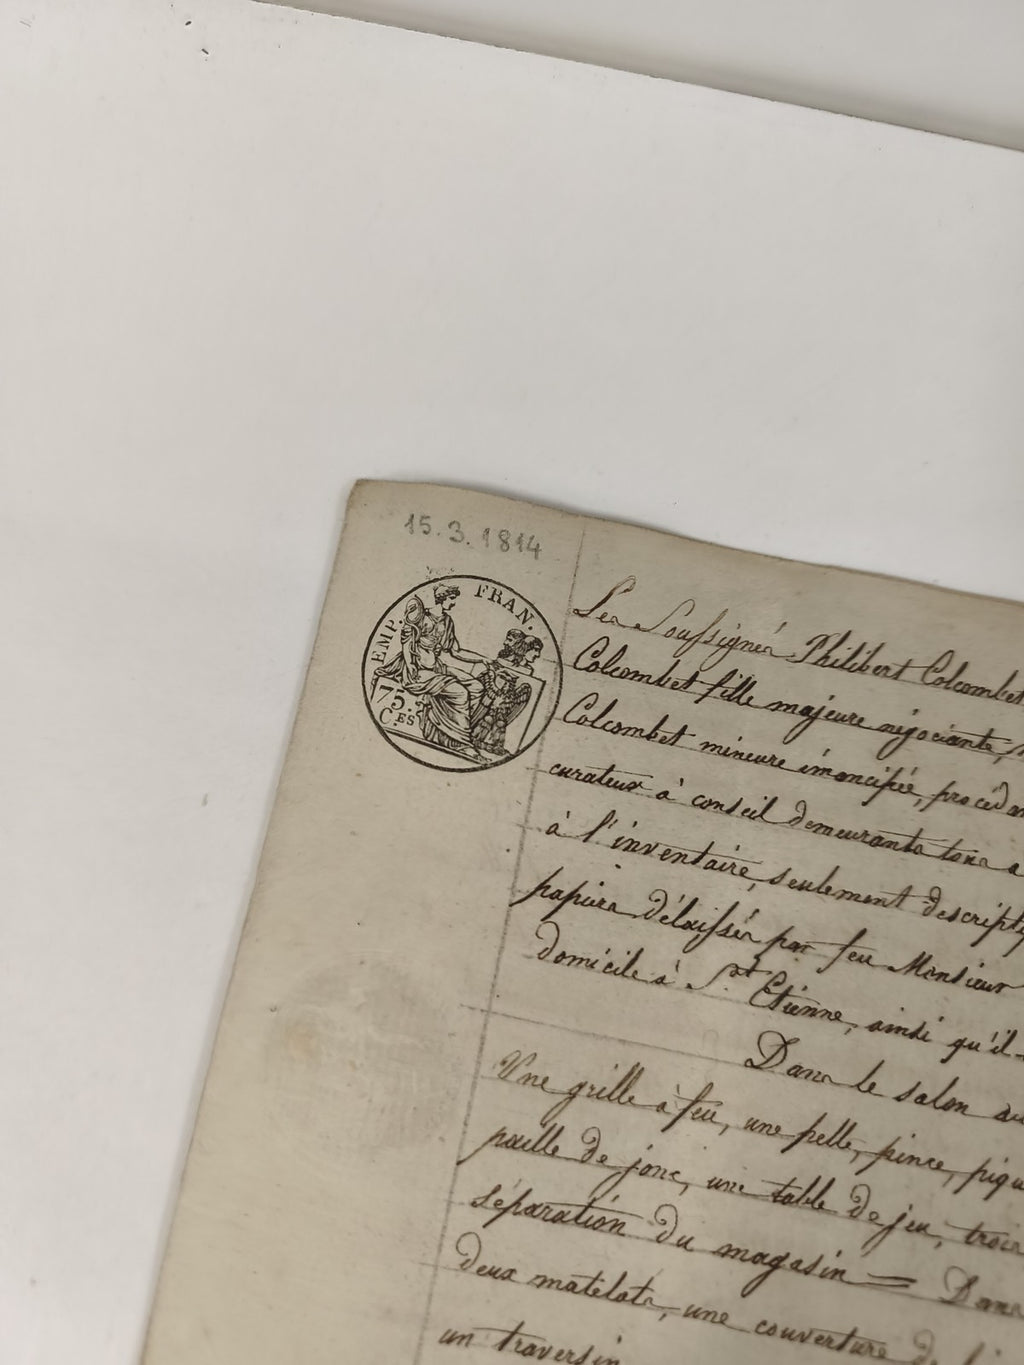 15.3.1814
EMP. FRAN.
75.
C.ES
Les Soussignés Philibert Colcombet
Colcombet fille majeure négociante,
Colcombet mineure émancipée, procédan
curateur à conseil demeurants tous a
à l'inventaire, seulement descripti
papiers délaissés par feu Monsieur
domicile à St. Etienne, ainsi qu'il
Dans le salon au
Une grille à feu, une pelle, pince, piqu
paille de jonc, une table de jeu, trois
séparation du magasin = Dans
deux matelats, une couverture de
un traversin